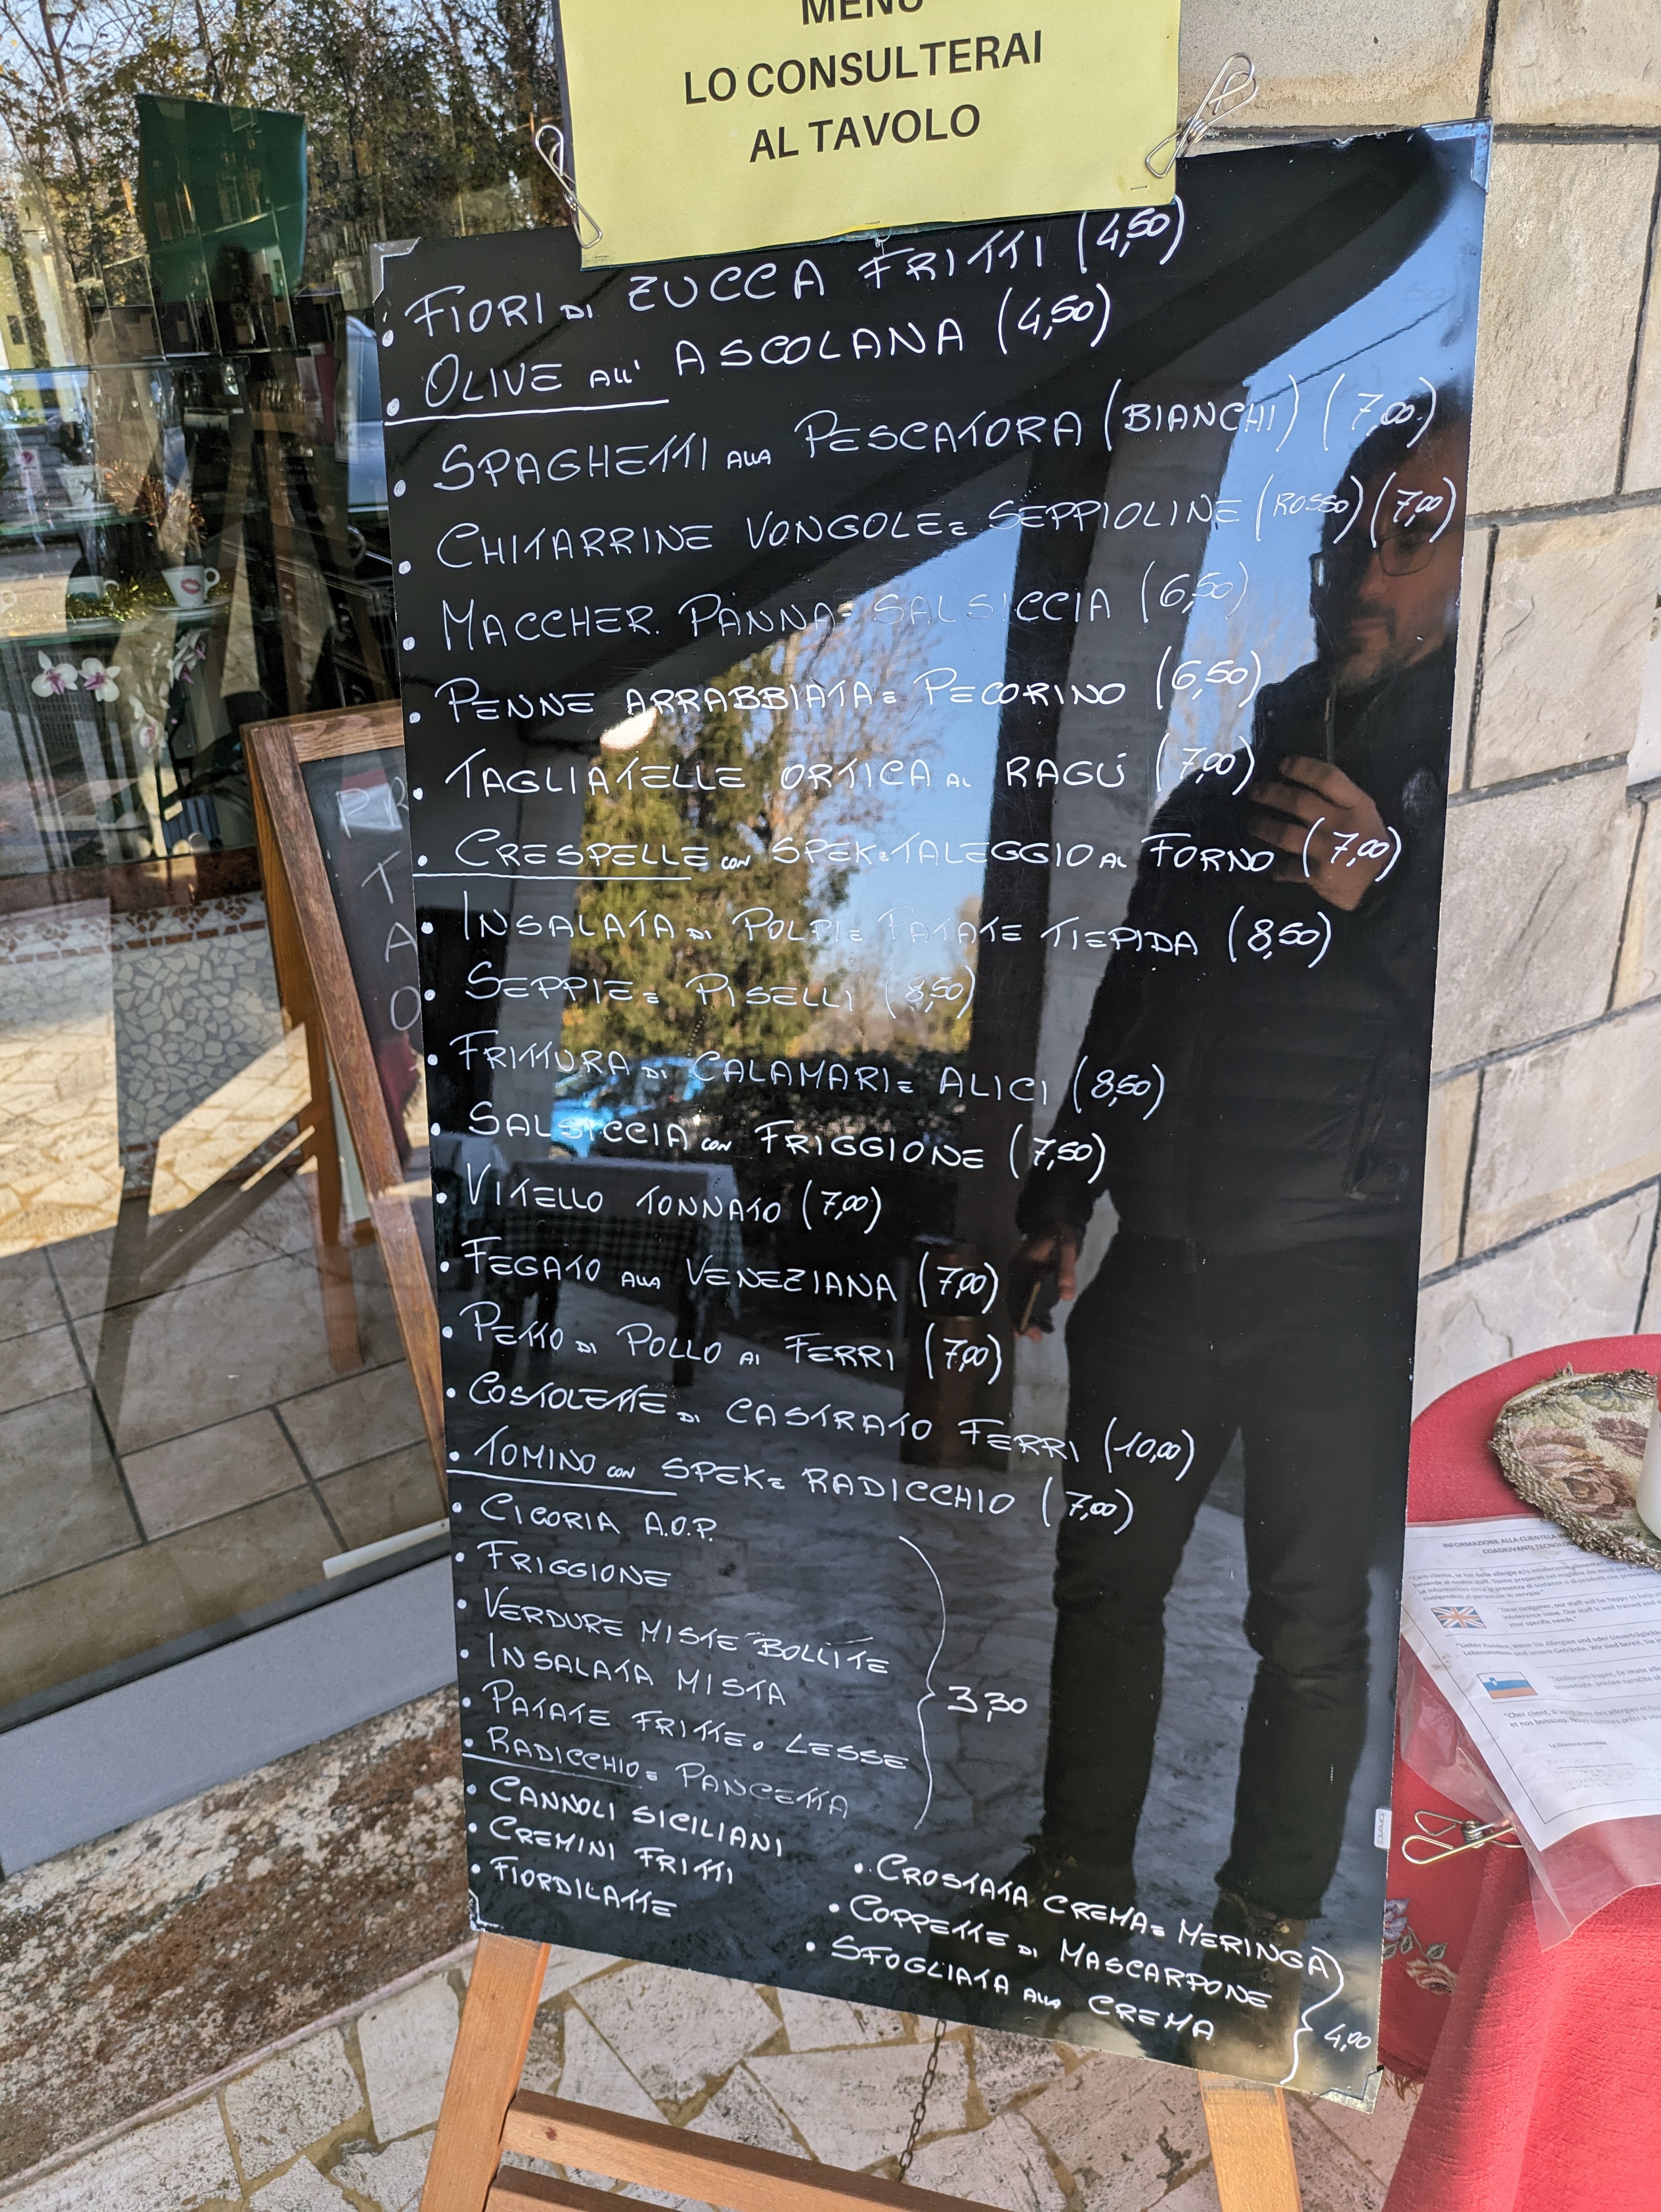 MENÙ
LO CONSULTERAI
AL TAVOLO
• FIORI DI ZUCCA FRITTI (4,50)
• OLIVE ALL' ASCOLANA (4,50)
• SPAGHETTI ALLA PESCATORA (BIANCHI) (7,00)
• CHITARRINE VONGOLE E SEPPIOLINE (ROSSO) (7,00)
• MACCHER. PANNA E SALSICCIA (6,50)
• PENNE ARRABBIATA E PECORINO (6,50)
• TAGLIATELLE ORTICA AL RAGÙ (7,00)
• CRESPELLE CON SPEK E TALEGGIO AL FORNO (7,00)
• INSALATA DI POLPI E PATATE TIEPIDA (8,50)
• SEPPIE E PISELLI (8,50)
• FRITTURA DI CALAMARI E ALICI (8,50)
• SALSICCIA CON FRIGGIONE (7,50)
• VITELLO TONNATO (7,00)
• FEGATO ALLA VENEZIANA (7,00)
• PETTO DI POLLO AI FERRI (7,00)
• COSTOLETTE DI CASTRATO FERRI (10,00)
• TOMINO CON SPEK E RADICCHIO (7,00)
• CICORIA A.O.P.
• FRIGGIONE
• VERDURE MISTE BOLLITE
• INSALATA MISTA
3,30
• PATATE FRITTE O LESSE
• RADICCHIO E PANCETTA
• CANNOLI SICILIANI
• CREMINI FRITTI
• FIORDILATTE
• CROSTATA CREMA E MERINGA
• COPPETTE DI MASCARPONE
• SFOGLIATA ALLA CREMA
4,00
INFORMAZIONE ALLA CLIENTELA
COADIUVANTI TECNOLO